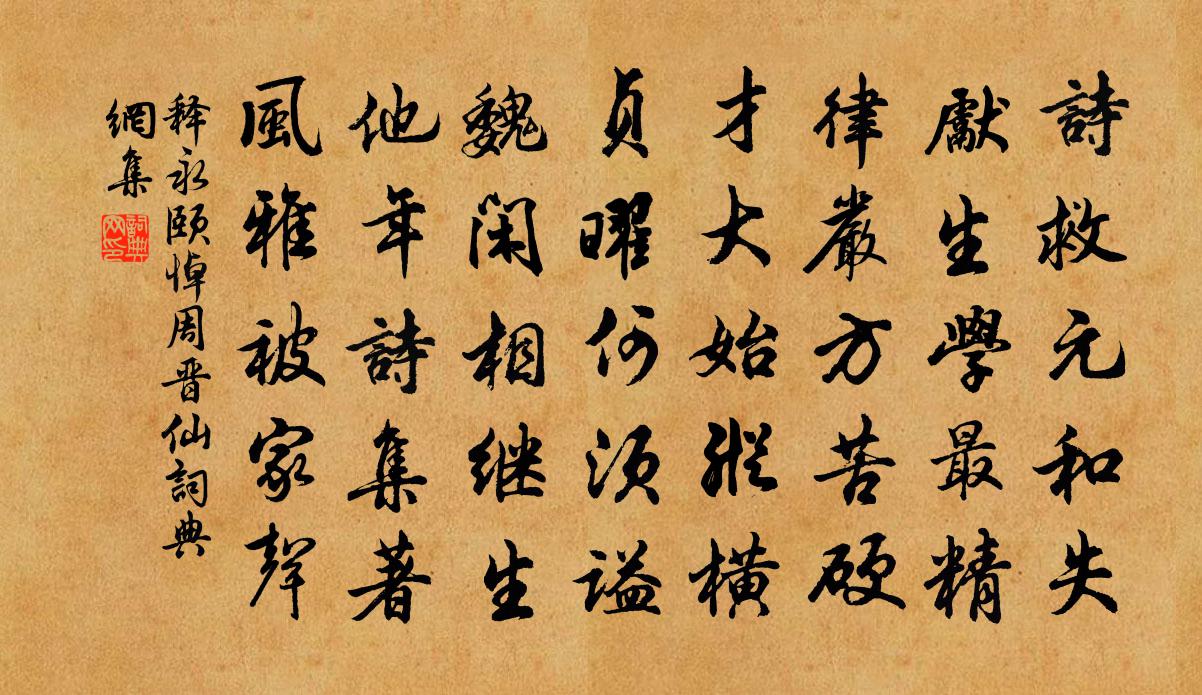 詩救元和失
獻生學最精
律嚴方苦硬
才大始縱橫
貞曜何須謚
魏閑相继生
他年詩集著
風雅被家聲
释永頤悼周晋仙詞典
網集
詞典網印